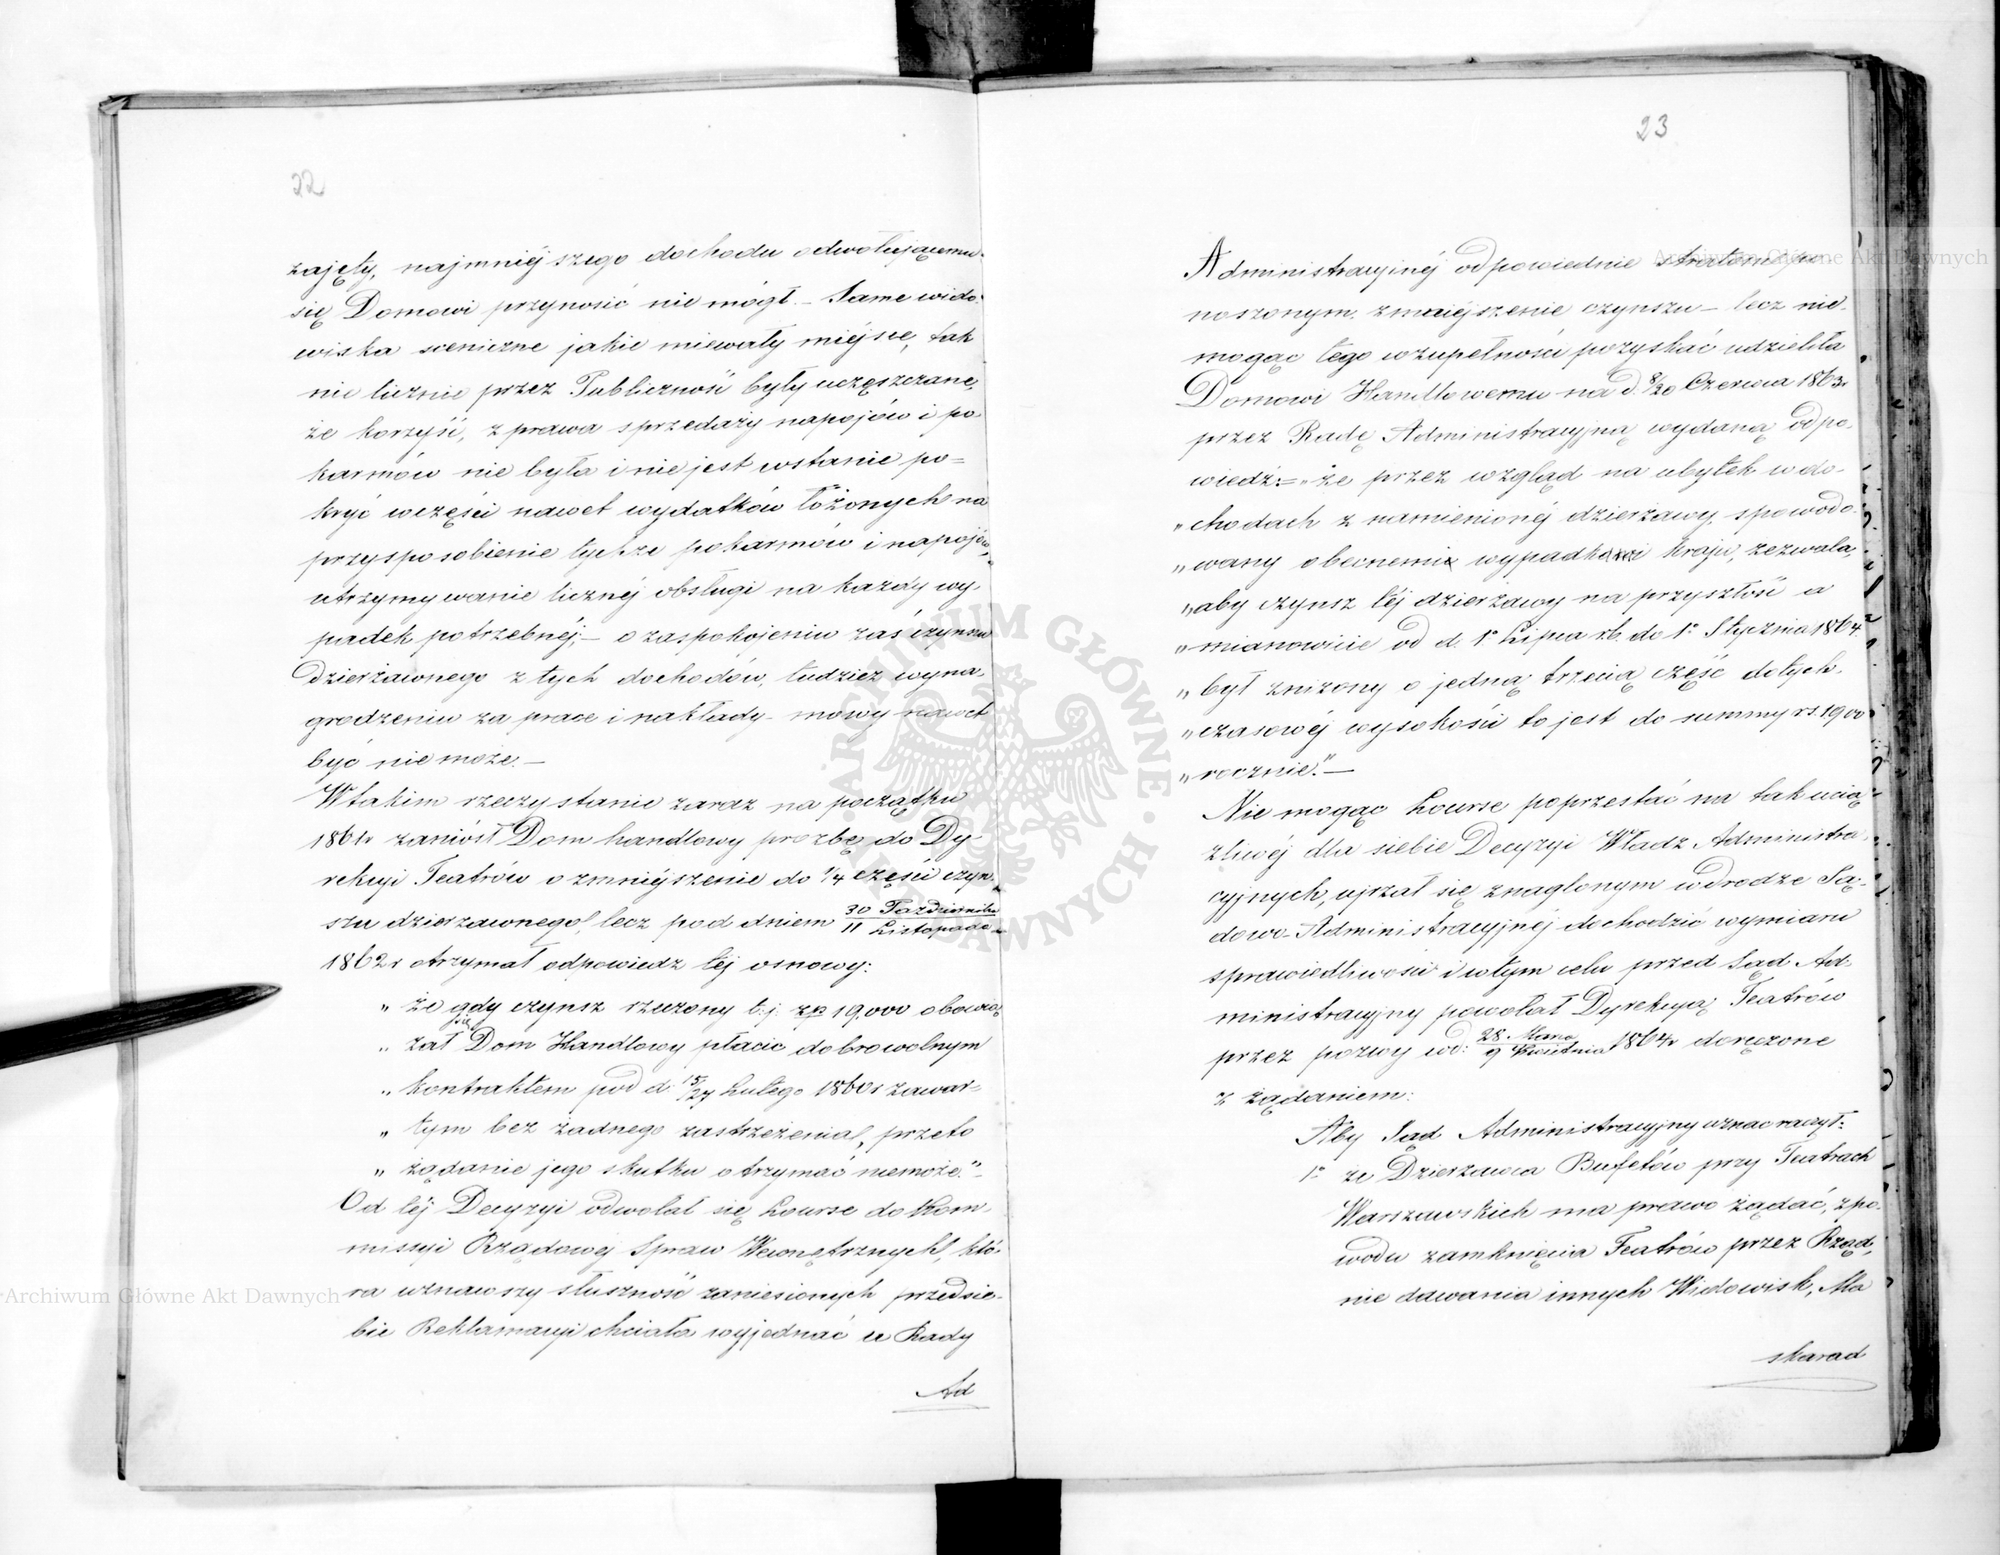 22
zajęty, najmniéjszego dochodu odwołującemu
się Domowi przynosić nie mógł. – Same wido-
wiska sceniczne jakie miewały miéjsce, tak
nie licznie przez Publiczność były uczęszczane,
że korzyść, z prawa sprzedaży napojów i po
karmów nie była i nie jest wstanie po=
kryć wczęści nawet wydatków łożonych na
przysposobienie tychże pokarmów i napojów,
utrzymywanie licznéj obsługi na każdy wy-
padek potrzebnéj; – o zaspokojeniu zaś czynszu
Dzierżawnego z tych dochodów, tudzież wyna-
grodzeniu za prace i nakłady – mowy nawet
być nie może. –
W takim rzeczy stanie zaraz na początku
1861r zaniósł Dom handlowy prozbę do Dy
rekcyi Teatrów o zmniéjszenie do 1/4 części czyn-
szu dzierzawnego, lecz pod dniem 30 Października / 11 Listopada
1862r otrzymał odpowiedz téj osnowy:
„ że gdy czynsz rzeczony t: j: zp 19,000 obowią
się
„ zał Dom Handlowy płacic dobrowolnym
„ kontraktem pod d. 15/27 Lutego 1860r zawar=
„ tym bez żadnego zastrzeżenia, przeto
„ żądanie jego skutku otrzymać niemoże." –
Od téj Decyzyi odwołał się Lourse do Kom-
missyi Rządowéj Spraw Wewnętrznych, któ-
ra uznawszy słuszność zaniesionych przedsie-
bie Reklamacyi chciała wyjednać u Rady
Ad
23
Administracyinéj odpowiednie stratom po
noszonym zmniéjszenie czynszu – lecz nie-
mogąc tego wzupełności pozyskać udzieliła
Domowi Handlowemu na d. 8/20 Czerwca 1863r
przez Radę Administracyjną wydaną odpo-
wiedź: = „że przez wzgląd na ubytek w do-
„ chodach z namienionéj dzierżawy, spowodo-
„ wany obecnemi wypadkami kraju, zezwala,
„ aby czynsz téj dzierżawy na przyszłość a
„ mianowicie od d. 1o Lipca r.b. do 1o Stycznia 1864.
„ był zniżony o jedną trzecią część dotych-
„ czasowéj wysokości to jest do summy rs. 1900
„ rocznie." –
Nie mogąc Lourse poprzestać na tak ucią
żliwéj dla siebie Decyzyi Władz Administra-
cyjnych, ujrzał się znaglonym w drodze Są-
dowo-Administracyjnéj dochodzić wymiaru
sprawiedliwości i w tym celu przed Sąd Ad-
ministracyjny powołał Dyrekcyą Teatrów
przez pozwy w d: 28 Marca / 9 Kwietnia 1864r doręczone
z żądaniem:
Aby Sąd Administracyjny uznac raczył:
1o że Dzierżawca Bufetów przy Teatrach
Warszawskich ma prawo żądać, z po-
wodu zamknięcia Teatrów przez Rząd,
nie dawania innych Widowisk, Ma
skarad
Archiwum Główne Akt Dawnych
Archiwum Główne Akt Dawnych
ARCHIWUM GŁÓWNE AKT DAWNYCH